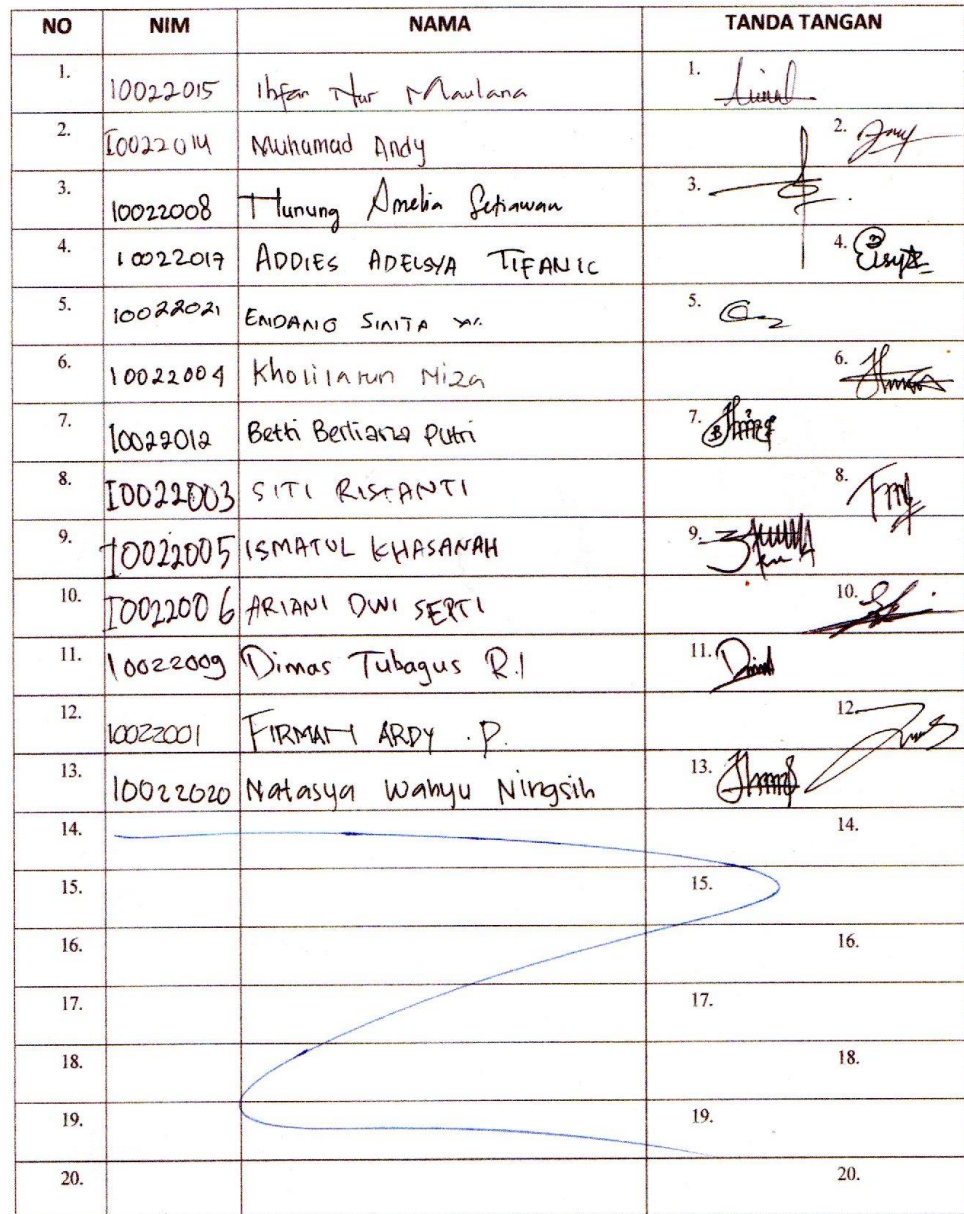 NO NIM NAMA TANDA TANGAN
1. 10022015 Ihfan Nur Maulana 1.
2. I0022014 Muhamad Andy 2.
3. 10022008 Nunung Amelia Setiawan 3.
4. 10022017 ADDIES ADELSYA TIFANIC 4.
5. 10022021 ENDANG SINTA 5.
6. 10022004 Kholilatun Niza 6.
7. I0022012 Betti Berliana Putri 7.
8. I0022003 SITI RISTANTI 8.
9. I0022005 ISMATUL KHASANAH 9.
10. I0022006 ARIANI DWI SEPTI 10.
11. 10022009 Dimas Tubagus R.I 11.
12. 10022001 FIRMAN ARDY . P. 12.
13. 10022020 Natasya Wahyu Ningsih 13.
14. 14.
15. 15.
16. 16.
17. 17.
18. 18.
19. 19.
20. 20.